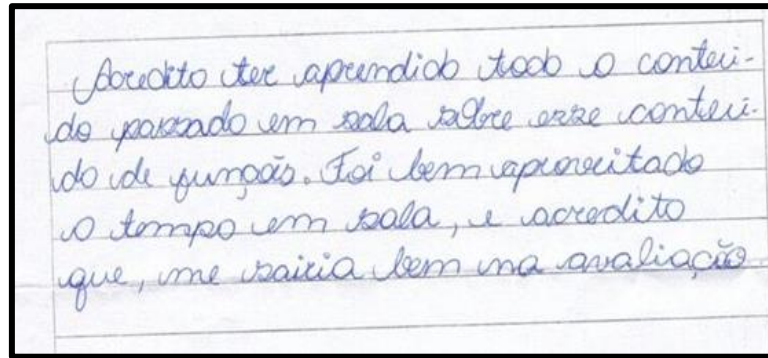 Acredito ter aprendido todo o conteú-
do passado em sala sobre esse conteú-
do de função. Foi bem aproveitado
o tempo em sala, e acredito
que, me sairia bem na avaliação.